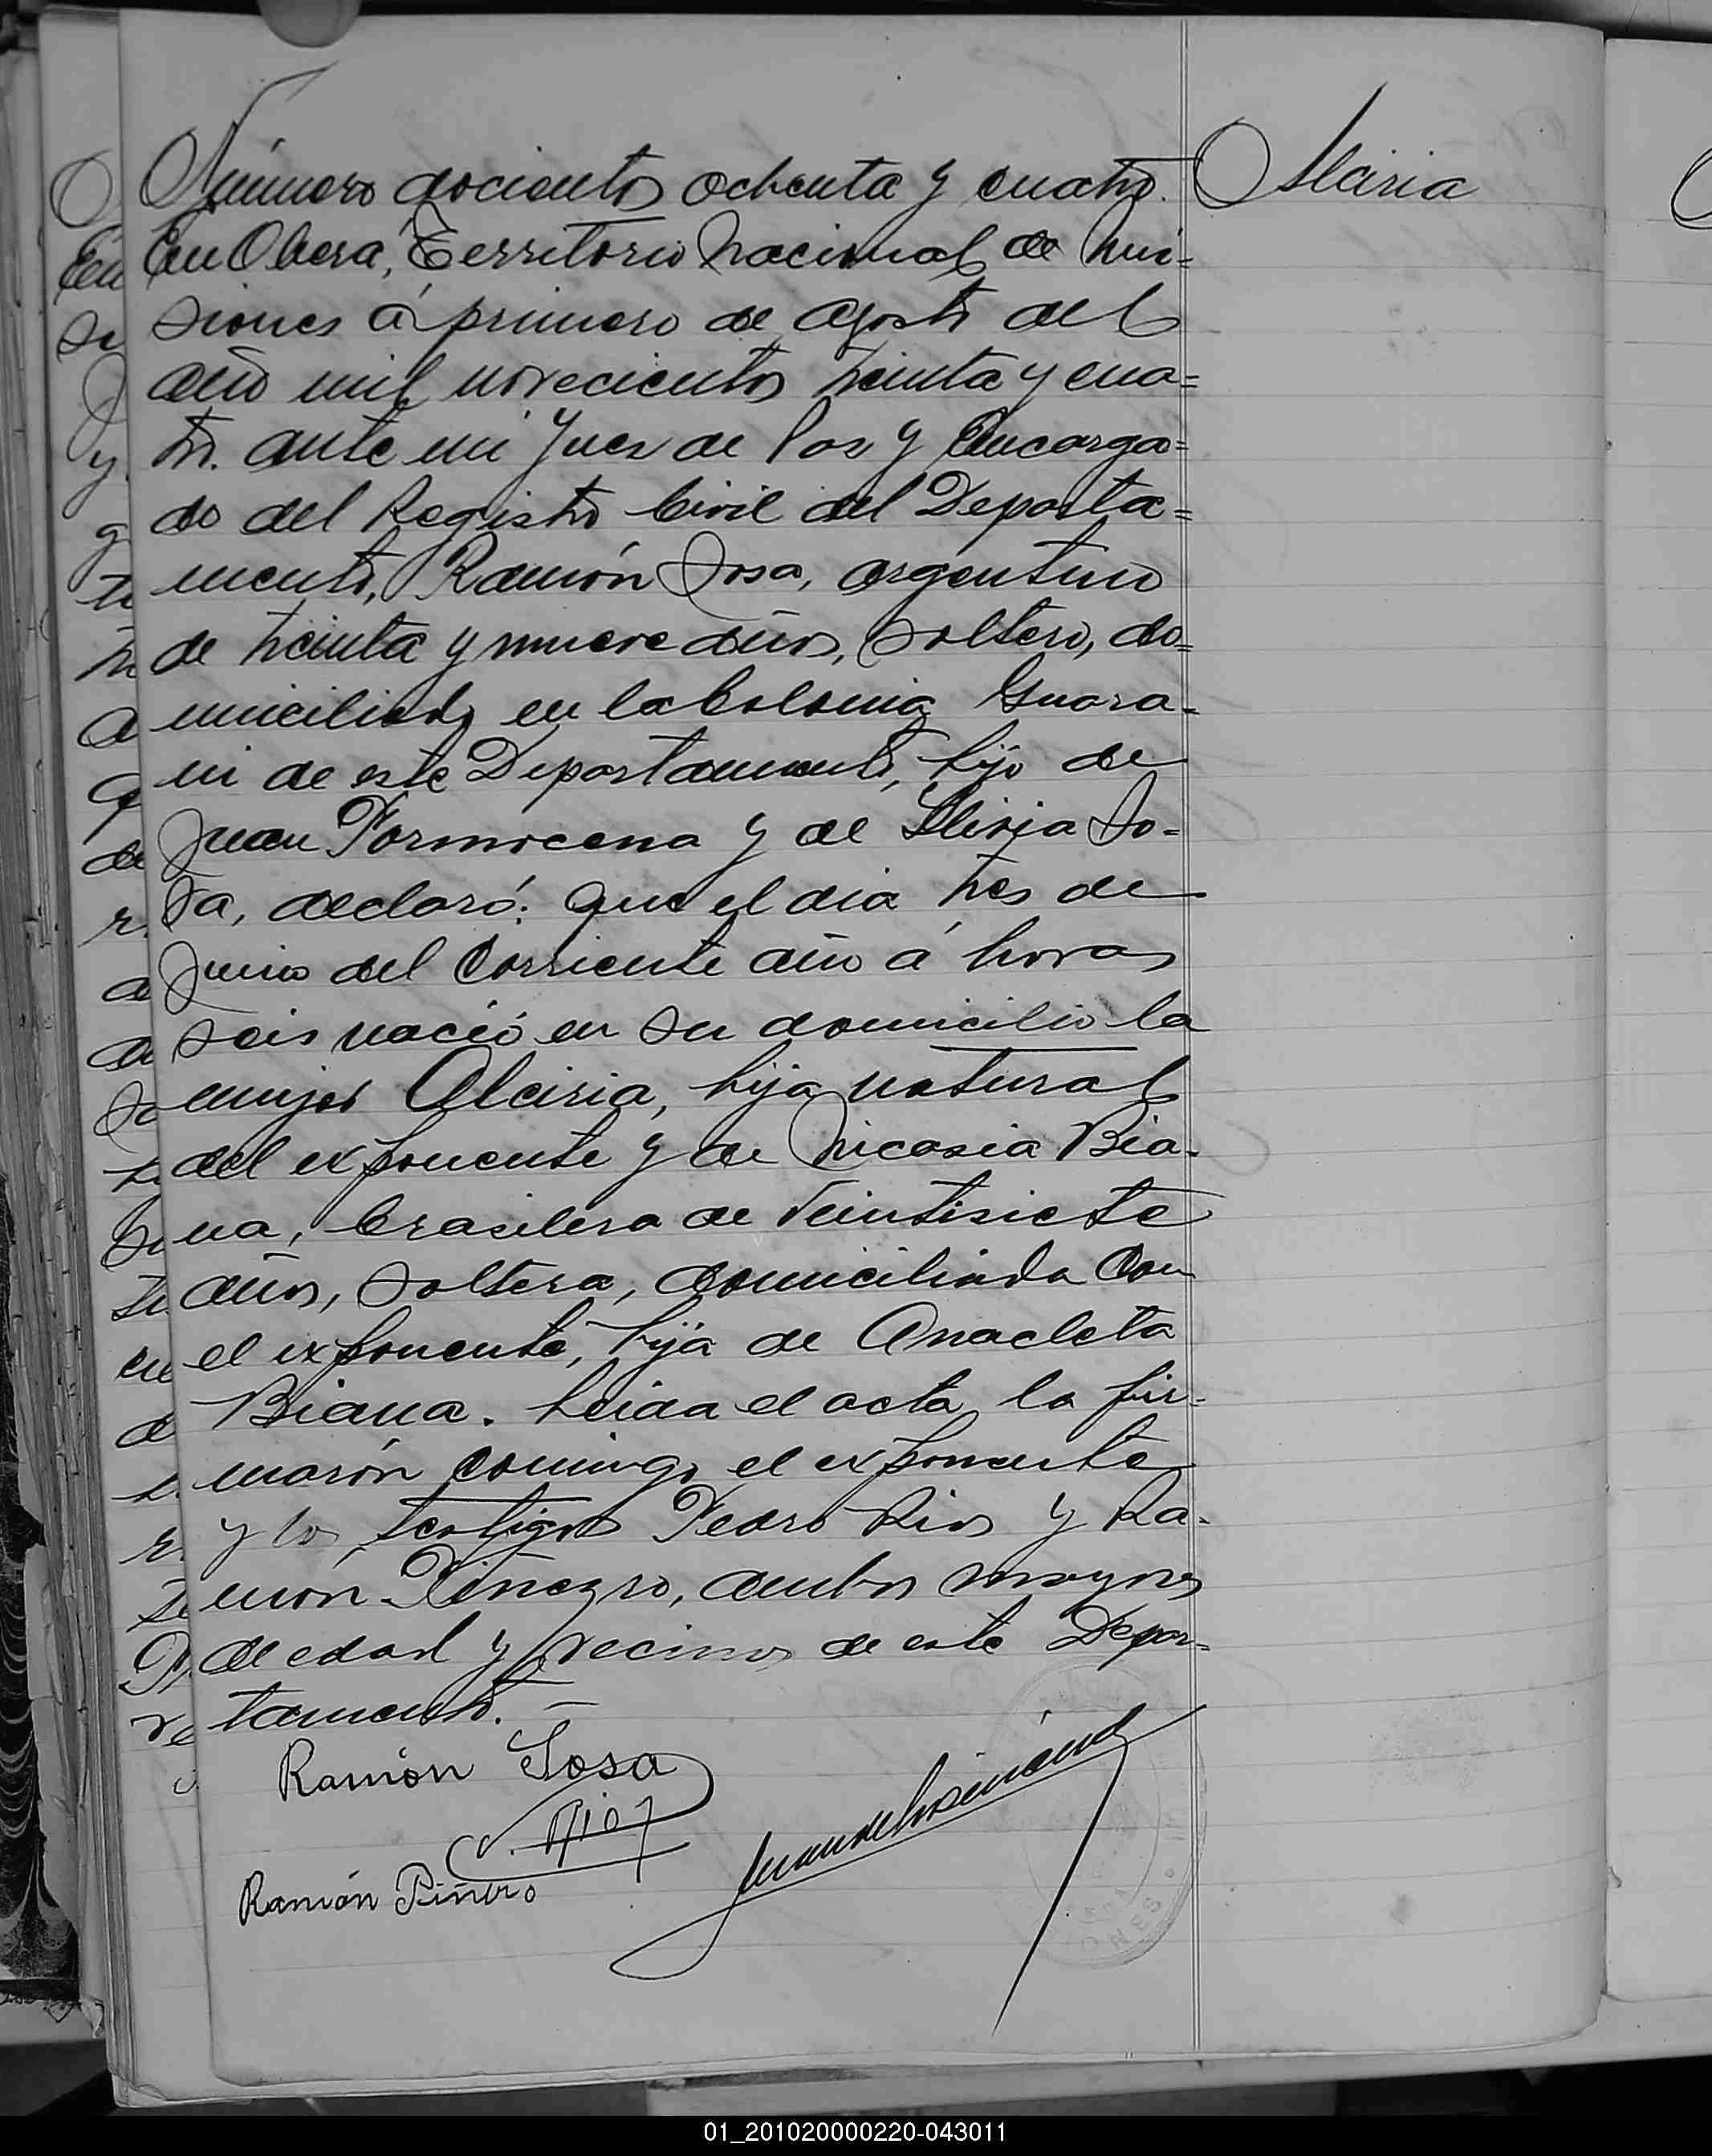 Número docientos ochenta y cuatro. Alciria
En Obera, Territorio Nacional de Mi=
siones á primero de Agosto del
año mil novecientos treinta y cua=
tro. ante mi Juez de Paz y Encarga=
do del Registro Civil del Departa=
mento, Ramón Sosa, argentino
de treinta y nueve años, soltero, do=
miciliado en la Colonia Guara-
ni de este Departamento, hijo de
Juan y de So-
sa, declaró: Que el dia tres de
Junio del corriente año á horas
seis nació en su domicilio la
mujer Alciria, hija natural
del exponente y de Nicasia Bia-
na, brasilera de veintisiete
años, soltera, domiciliada con
el exponente, hija de Anacleta
Biana. Leida el acta la fir=
marón conmigo el exponente
y los testigos Pedro Rios y Ra-
món Piñeyro, ambos mayores
de edad y vecinos de este Depar=
tamento.
Ramón Sosa
Ramón Piñero
01_201020000220-043011